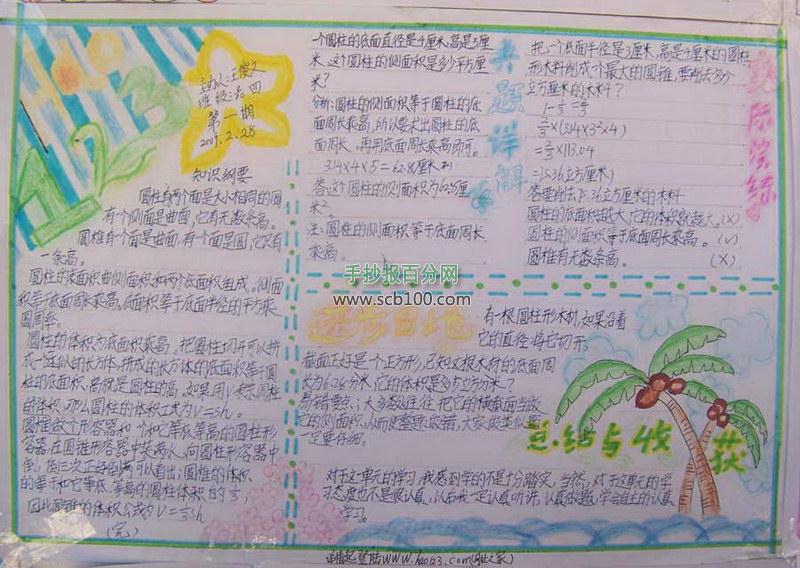 主办人:汪俊文
班级:六.四
第一期
2009.2.28
123
知识纲要
圆柱有两个面是大小相同的圆
有一个侧面是曲面,它有无数条高。
圆椎有个面是曲面,有个面是圆,它只有
一条高。
圆柱的表面积由侧面积和两个底面积组成。侧面
积等于底面周长乘高。底面积等于底面半径的平方乘
圆周率。
圆柱的体积为底面积乘高。把圆柱切开可以拼
成一近似的长方体,拼成的长方体的底面积等于圆
柱的底面积,高就是圆柱的高。如果用V表示圆柱
的体积,那么圆柱的体积公式为V=sh。
圆椎做个形容器和个和它等低等高的圆柱形
容器,在圆锥形容器中装满水,向圆柱形容器中
倒,倒三次正好倒满可以看出:圆椎的体积
的等于和它等低、等高的圆柱体积的1/3,
因此圆锥的体积公式为V=1/3sh
(完)
一个圆柱的底面直径是4厘米,高是5厘
米,这个圆柱的侧面积是多少平方厘
米?
分析:圆柱的侧面积等于圆柱的底
面周长乘高,所以要求出圆柱的底
面周长,再用底面周长乘高即可。
3.14×4×5=62.8(厘米²)
答:这个圆柱的侧面积为62.8厘
米²。
注:圆柱的侧面积等于底面周长
乘高。
题详解
把一个底面半径是3厘米,高是4厘米的圆柱
形木料削成个最大的圆锥,要削去多少
立方厘米的木料?
1-1/3=2/3
2/3×(3.14×3²×4)
=2/3×113.04
=75.36(立方厘米)
答:要削去75.36立方厘米的木料
圆柱的底面积越大,它的体积就越大。(×)
圆柱的侧面积等于底面周长乘高。(√)
圆椎有无数条高。(×)
实际演练
手抄报百分网
www.scb100.com
进步自地
有一根圆柱形木材,如果沿着
它的直径将它切开,
截面正好是个正方形,已知这根木材的底面周
长为6.28分米,它的体积是多少立方分米?
易错要点:大多数人往往把它的横截面当做
它的侧面积,从而使整题放错,大家做类似题
一定要仔细。
总结与收获
对于这一单元的学习,我感到学的不是十分踏实,当然,对于这单元的学
习态度也不是很认真,以后我一定认真听讲,认真做题,学会自主的认真
学习。
详情起登陆www.hao123.com(网址之家)